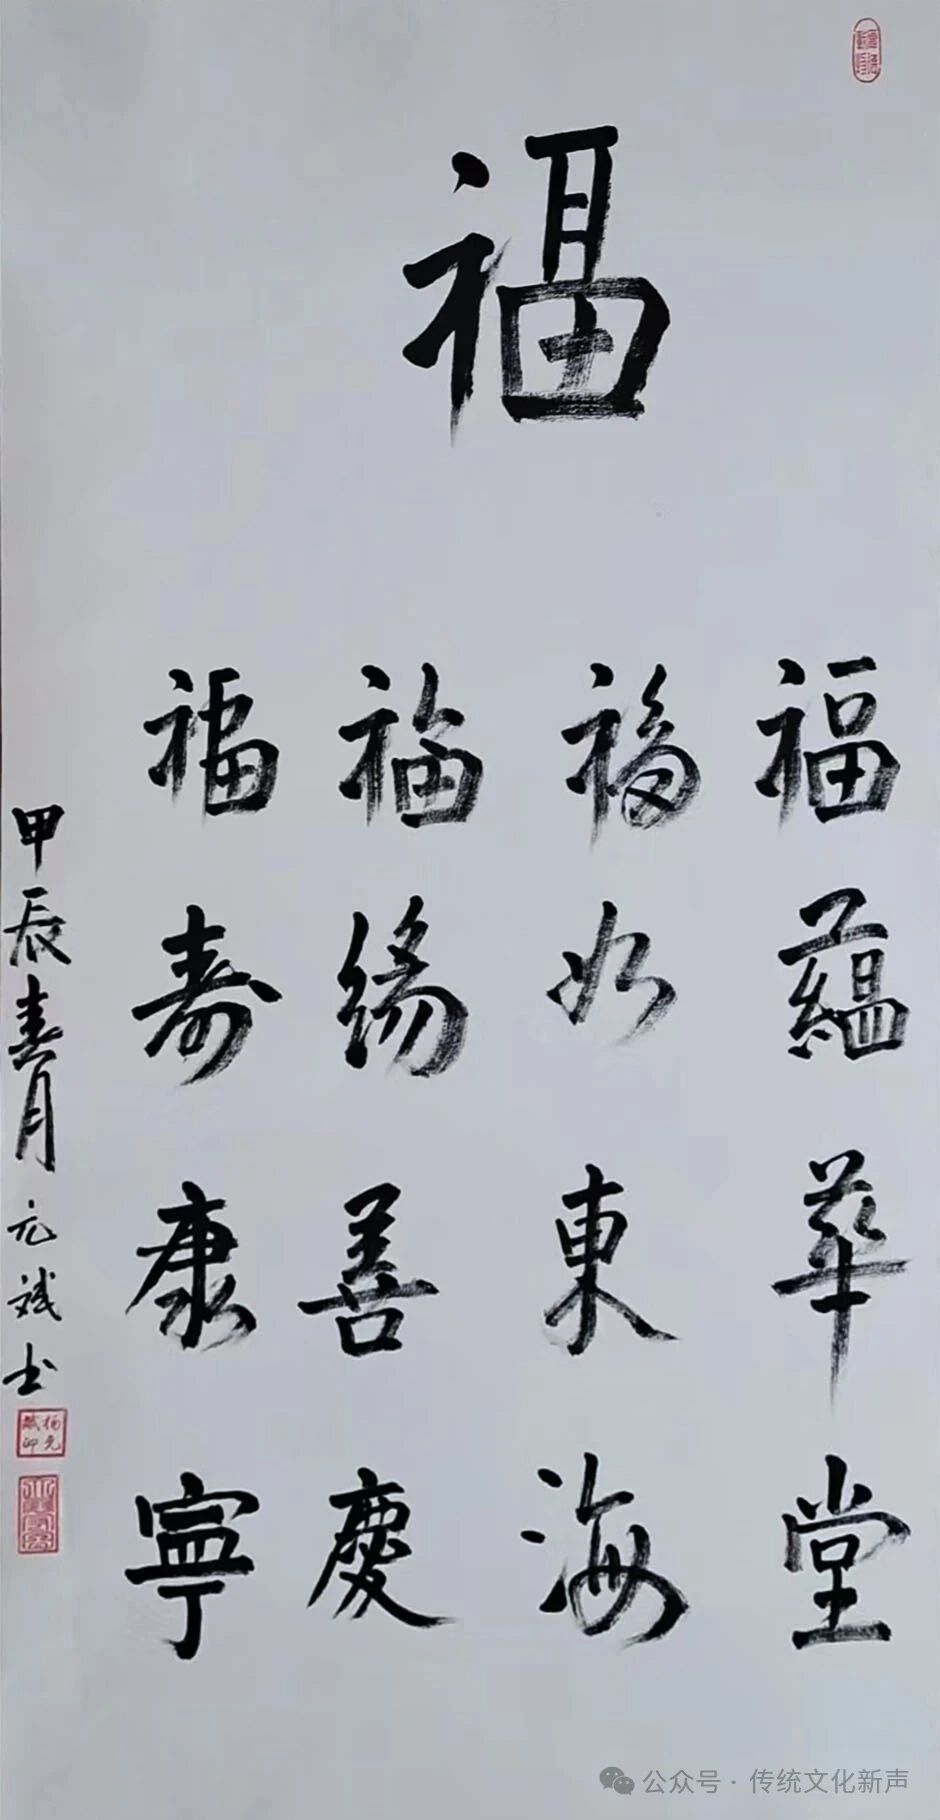 福
福蘊華堂
福如東海
福緣善慶
福壽康寧
甲辰春月元斌书
公众号·传统文化新声